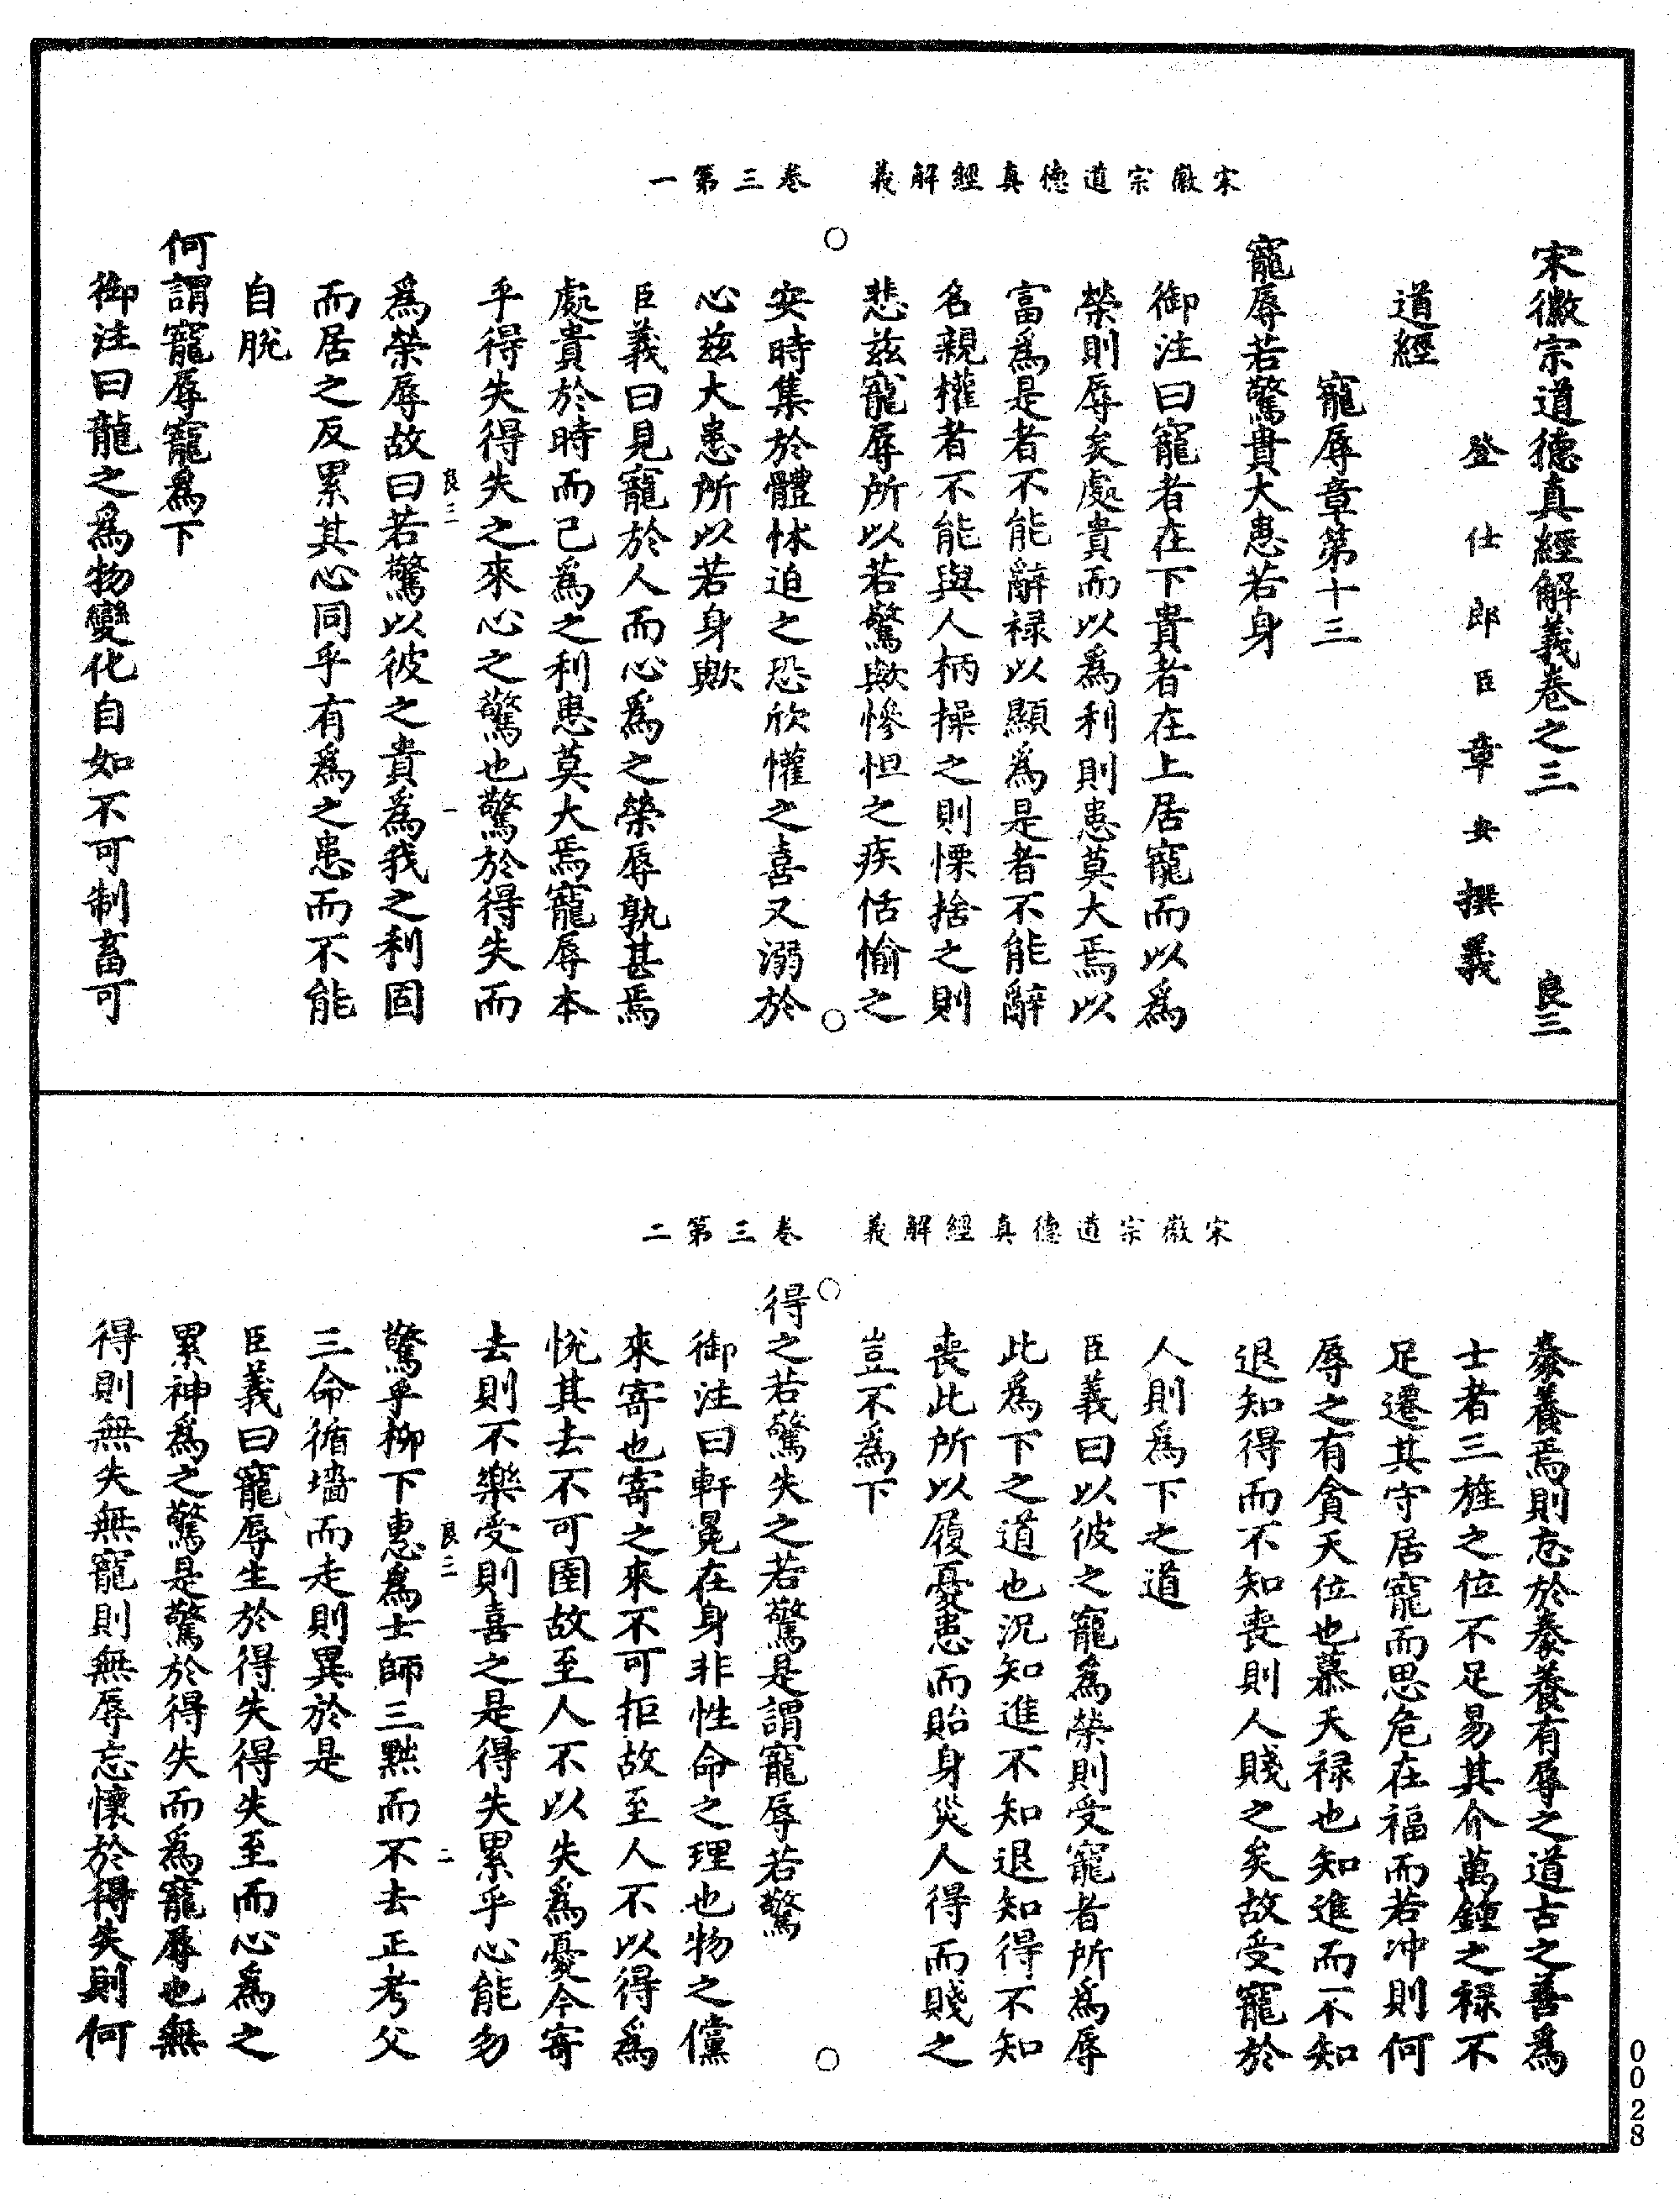 宋徽宗道德真經解義　卷三第一
宋徽宗道德真經解義卷之三　良三
登仕郎臣章安撰義
道經
寵辱章第十三
寵辱若驚貴大患若身
御注曰寵者在下貴者在上居寵而以爲
榮則辱矣處貴而以爲利則患莫大焉以
富爲是者不能辭祿以顯爲是者不能辭
名親權者不能與人柄操之則慄捨之則
悲茲寵辱所以若驚歟慘怛之疾恬愉之
安時集於體怵迫之恐欣懽之喜又溺於
心茲大患所以若身歟
臣義曰見寵於人而心爲之榮辱孰甚焉
處貴於時而己爲之利患莫大焉寵辱本
乎得失得失之來心之驚也驚於得失而
良三　一
爲榮辱故曰若驚以彼之貴爲我之利固
而居之反累其心同乎有爲之患而不能
自脫
何謂寵辱寵爲下
御注曰龍之爲物變化自如不可制畜可
宋徽宗道德真經解義　卷三第二
豢養焉則志於豢養有辱之道古之善爲
士者三旌之位不足易其介萬鍾之祿不
足遷其守居寵而思危在福而若沖則何
辱之有貪天位也慕天祿也知進而不知
退知得而不知喪則人賤之矣故受寵於
人則爲下之道
臣義曰以彼之寵爲榮則受寵者所爲辱
此爲下之道也況知進不知退知得不知
喪此所以履憂患而貽身災人得而賤之
豈不爲下
得之若驚失之若驚是謂寵辱若驚
御注曰軒冕在身非性命之理也物之儻
來寄也寄之來不可拒故至人不以得爲
悅其去不可圉故至人不以失爲憂今寄
去則不樂受則喜之是得失累乎心能勿
良三　二
驚乎柳下惠爲士師三黜而不去正考父
三命循墻而走則異於是
臣義曰寵辱生於得失得失至而心爲之
累神爲之驚是驚於得失而爲寵辱也無
得則無失無寵則無辱忘懷於得失則何
0028